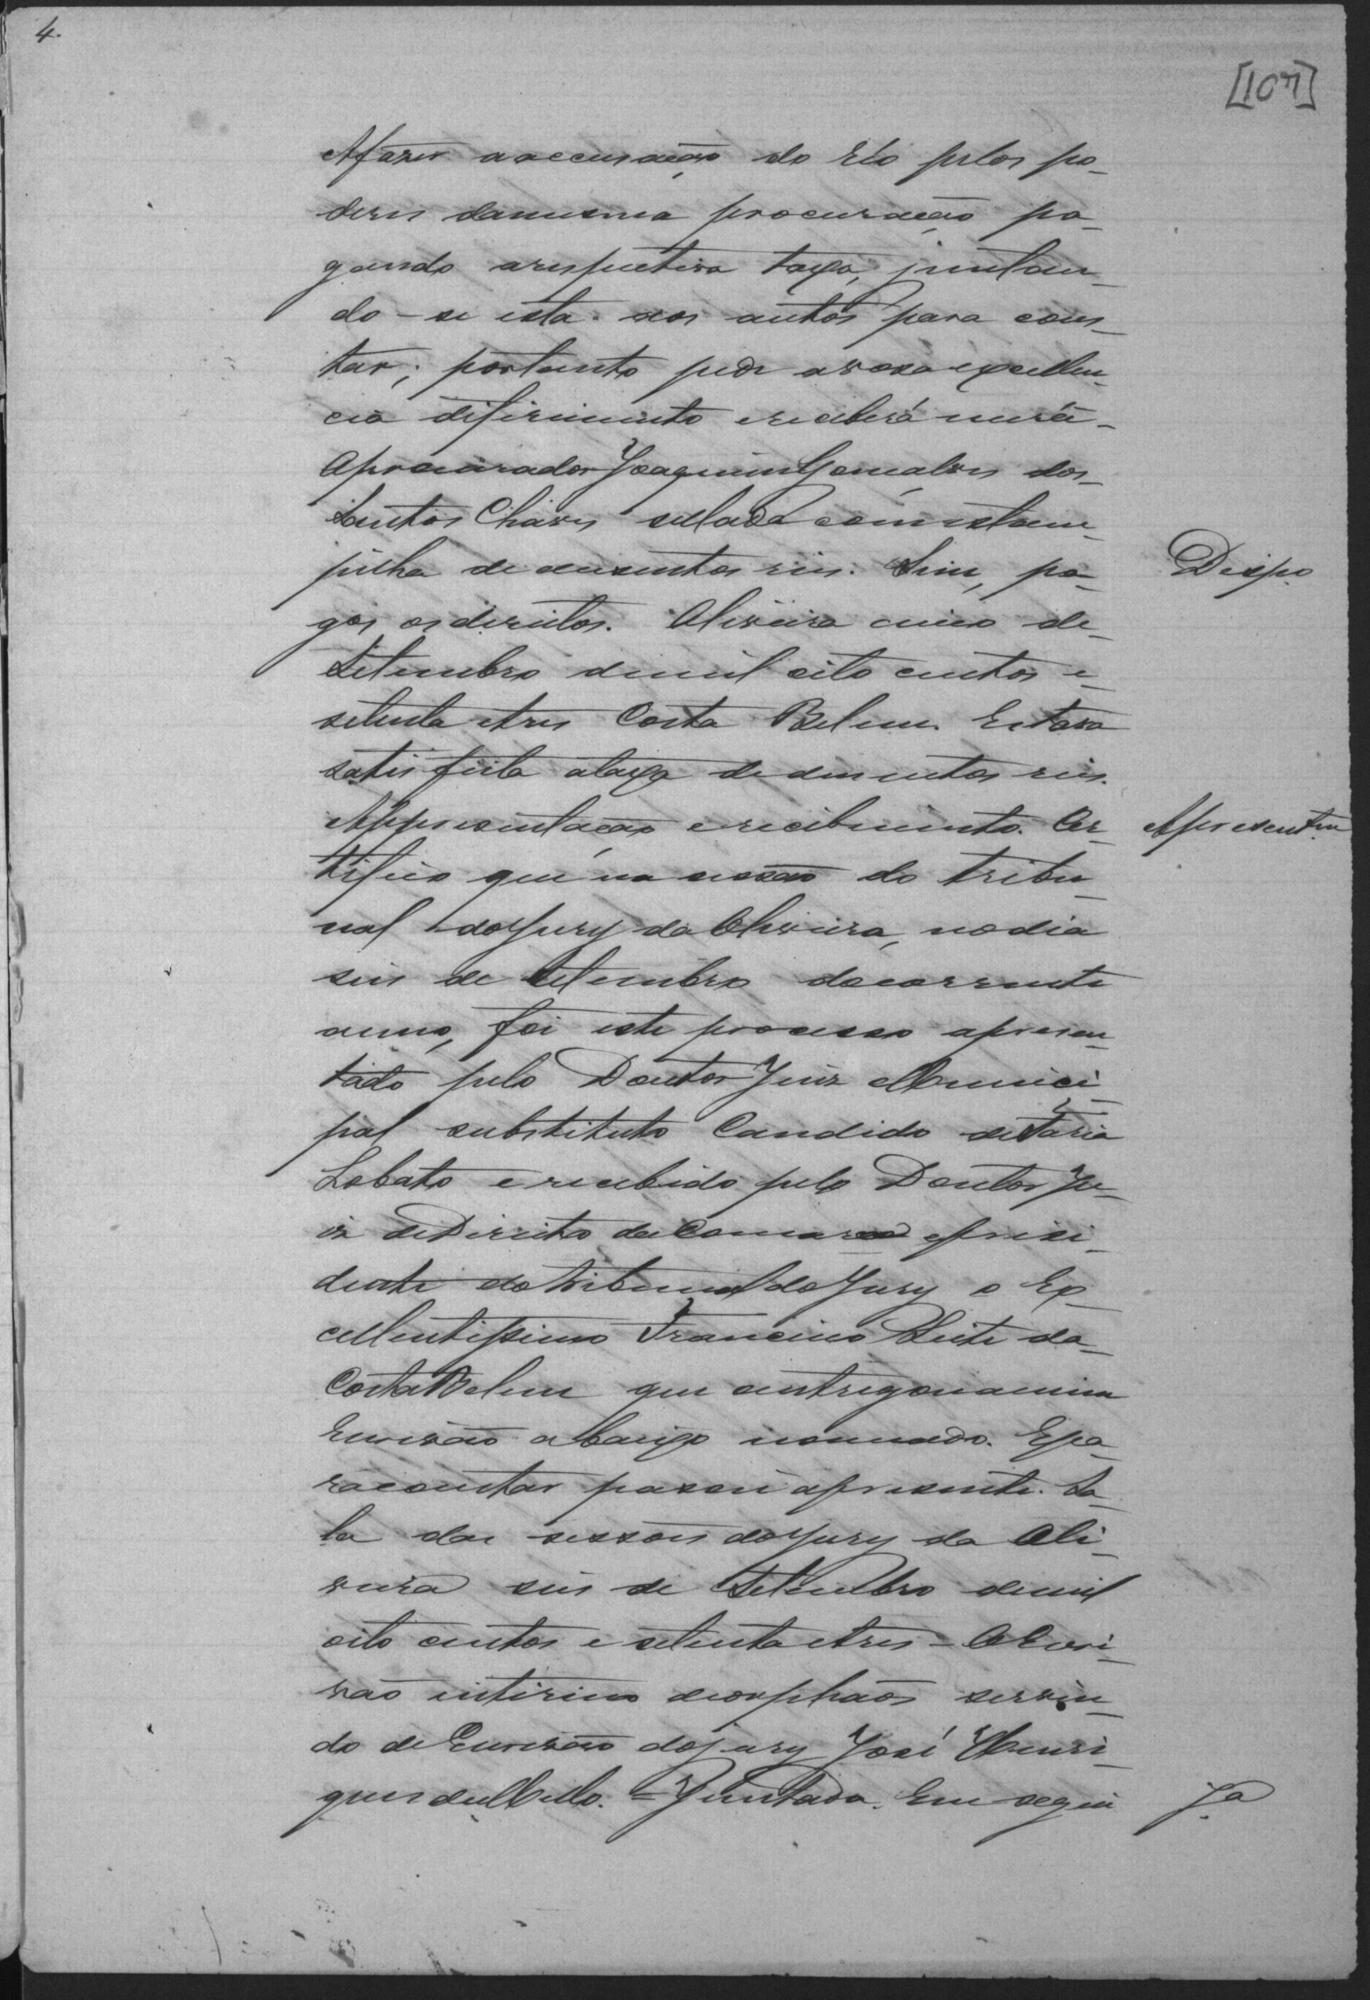 4.
[107]
Afazer a accusação do réo pelos po-
deres damesma procuração pa-
gando arespectiva taxa, juntan-
do-se esta aos autos para cons-
tar; portanto pede avossa excellen-
cia diferimento erecebera mercê-
Oprocurador Joaquim Gonçalves dos-
Santos Chaves sellada com estam-
pilha de duzentos reis. Sim, pa-
Despo
gos os direitos. Oliveira cinco de-
Setembro demil oito centos e-
setenta etres Costa Belem. Estava
satisfeita ataxa de duzentos reis.
Appresentação e recebimento. Cer-
Apresentam
tifico que na sessão do tribu-
nal doJury da Oliveira, nodia
seis de Setembro docorrente
anno, foi este processo apresen-
tado pelo Doutor Juiz Munici-
pal substituto Candido deFaria
Lobato e recebido pelo Doutor Ju-
iz deDireito daComarca ePresi-
dente dotribunal doJury o Ex-
cellentissimo Francisco Leite da-
CostaBelem que entregou amim
Escrivão abaixo nomeado. Epa-
raconstar passei apresente. Sa-
la das sessões doJury da Oli-
veira seis de Setembro demil
oito centos e setenta etres - OEscri-
vão interino deorphãos servin-
do deEscrivão dojury José Henri-
ques deMello. = Juntada. Em segui
Ja